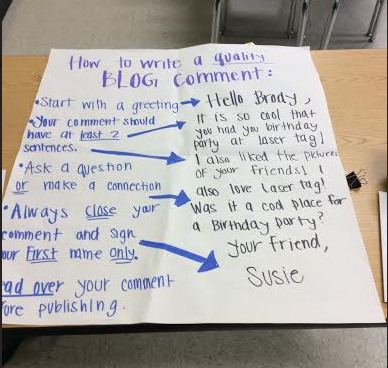 How to write a quality
BLOG Comment:
•Start with a greeting
•Your comment should
have at least 2
sentences.
•Ask a question
or make a connection
•Always close your
comment and sign
our First name only.
ad over your comment
fore publishing.
Hello Brody,
It is so cool that
you had you birthday
party at laser tag!
I also liked the pictures
of your friends! I
also love laser tag!
Was it a cool place for
a Birthday party?
Your friend,
Susie